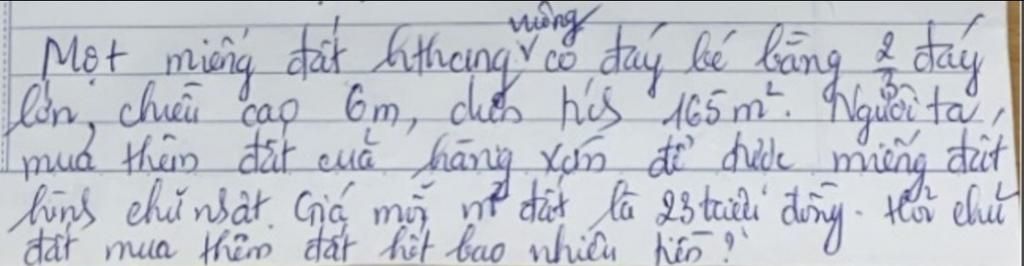 vuông
Một miếng đất hthang có đáy bé bằng 2/3 đáy
lớn, chiều cao 6m, diện tích 165m². Người ta
mua thêm đất của hàng xóm để được miếng đất
hình chữ nhật. Giá mỗi m² đất là 23 triệu đồng. Hỏi chủ
đất mua thêm đất hết bao nhiêu tiền?